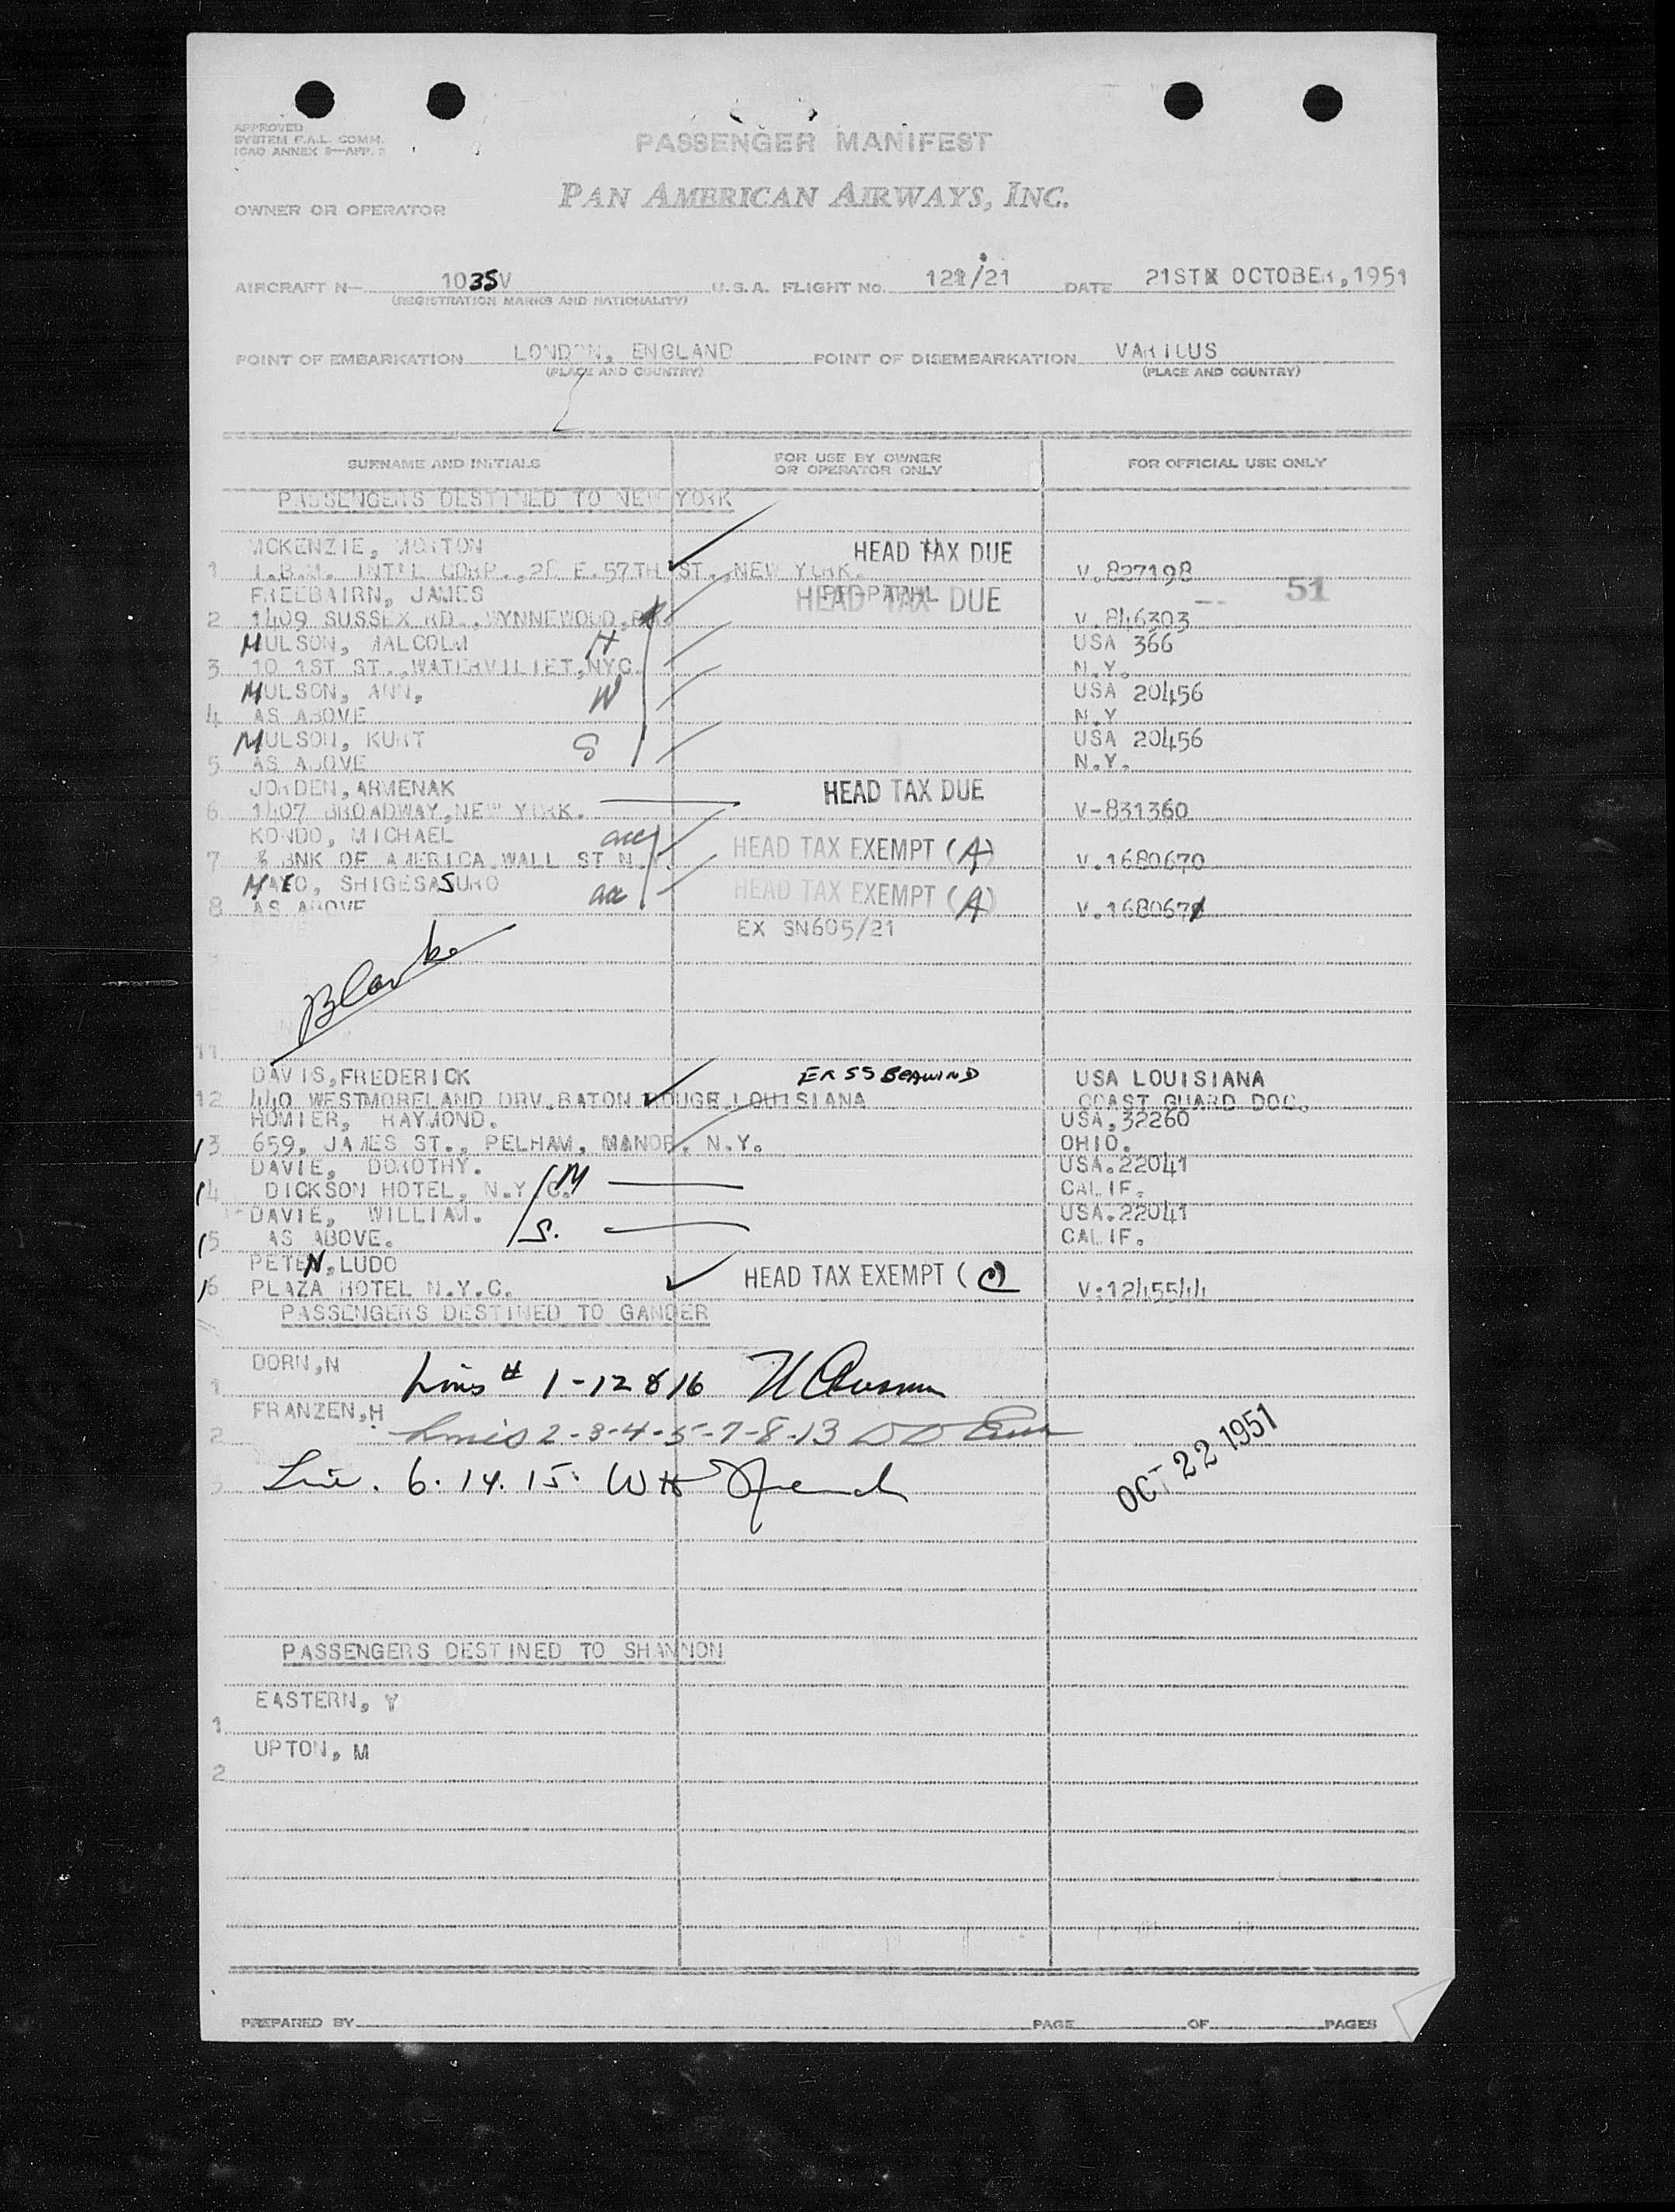 APPROVED
SYSTEM F.A.L. COMM.
ICAO ANNEX 9—APP. 2
PASSENGER MANIFEST
OWNER OR OPERATOR
PAN AMERICAN AIRWAYS, INC.
AIRCRAFT N— 1035V U.S.A. FLIGHT No. 121/21 DATE 21ST OCTOBER, 1951
(REGISTRATION MARKS AND NATIONALITY)
POINT OF EMBARKATION LONDON, ENGLAND POINT OF DISEMBARKATION VARIOUS
(PLACE AND COUNTRY) (PLACE AND COUNTRY)
SURNAME AND INITIALS FOR USE BY OWNER OR OPERATOR ONLY FOR OFFICIAL USE ONLY
PASSENGERS DESTINED TO NEW YORK
MCKENZIE, MORTON HEAD TAX DUE
1 I.B.M. INT'L CORP., E.57TH ST., NEW YORK. V.827198
FREEBAIRN, JAMES HEAD TAX DUE 51
2 1409 SUSSEX RD., WYNNEWOOD, V.846303
MULSON, MALCOLM H USA 366
3 10 1ST ST., WATERVILIET, NYC. N.Y.
MULSON, ANN, W USA 20456
4 AS ABOVE N.Y
MULSON, KURT S USA 20456
5 AS ABOVE N.Y.
JORDEN, ARMENAK HEAD TAX DUE
6 1407 BROADWAY, NEW YORK. V-831360
KONDO, MICHAEL acc HEAD TAX EXEMPT (A)
7 % BNK OF AMERICA WALL ST N.Y. V.1680670
MAYO, SHIGESASURO acc HEAD TAX EXEMPT (A)
8 AS ABOVE V.1680671
EX SN605/21
11
DAVIS, FREDERICK USA LOUISIANA
12 440 WESTMORELAND DRV. BATON ROUGE LOUISIANA COAST GUARD DOC.
HOMIER, RAYMOND. USA, 32260
13 659, JAMES ST., PELHAM, MANOR, N.Y. OHIO.
DAVIE, DOROTHY. USA.22041
14 DICKSON HOTEL, N.Y.C. M CALIF.
DAVIE, WILLIAM. USA.22041
15 AS ABOVE. S. CALIF.
PETEN, LUDO
16 PLAZA HOTEL N.Y.C. HEAD TAX EXEMPT (C) V:1245544
PASSENGERS DESTINED TO GANDER
DORN, N
1 Lines # 1-12 & 16
FRANZEN, H
2 Lines 2-3-4-5-7-8-13
3 Lin. 6. 14. 15. OCT 22 1951
PASSENGERS DESTINED TO SHANNON
EASTERN, Y
1
UPTON, M
2
PREPARED BY PAGE OF PAGES